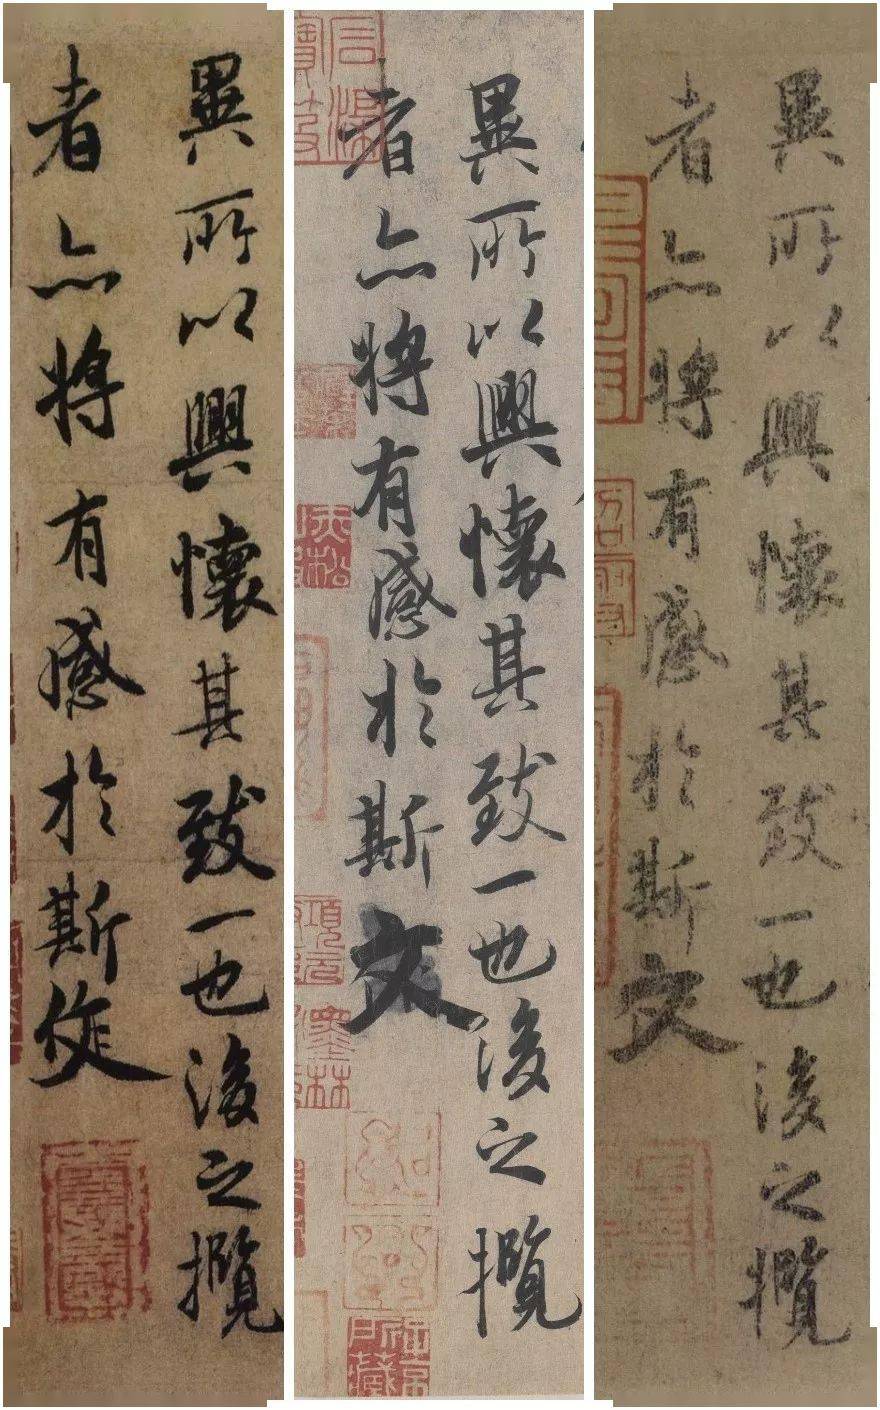 異所以興懷其致一也後之攬
者亦將有感於斯文
異所以興懷其致一也後之攬
者亦將有感於斯文
異所以興懷其致一也後之攬
者亦將有感於斯作